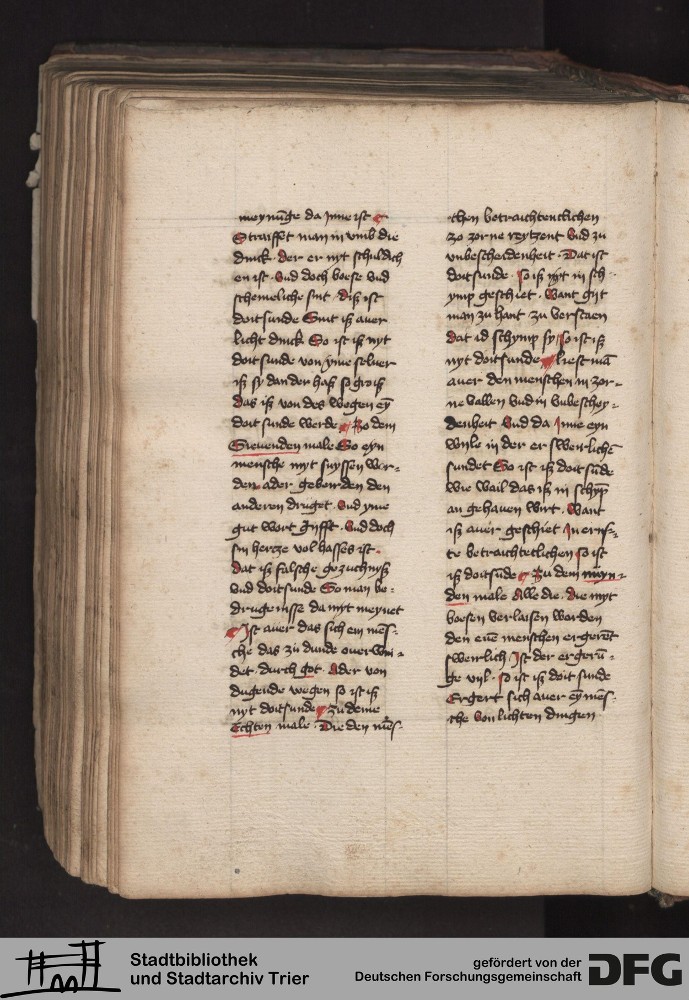 meynūge da jnne ist
Straiffet man in vmb die
dinck. der er nyt schuldich
en ist. Vnd doch boese vnd
schemeliche sint. diß ist
doit sunde Sint iß auer
licht dinck So ist iß nyt
doit sunde von yme seluer
iß sy dan der haß so groiß
das iß von des wegen ey̅
doit sunde werde Zo dem
Sieuenden male So eyn
mensche myt suyssen wor-
den. ader geberden den
anderen druget. Vnd yme
gut wort gifft. Vnd doch
sin hertze vol hasses ist.
dat iß falsche gezuchniß
vnd doit sunde So man be-
drugenisse da myt meynet
Ist auer das sich ein mēs-
che das zu dunde ouer wi-
det. durch got. Ader von
dugende wegen so ist iß
nyt doit sunde zu deme
Echten male. Die den mēs-
chen betraichtentlichen
zo zorne reytzent Vnd zu
vnbescheidenheit. Dat ist
doit sunde. so iß nyt in sch-
ymp geschiet. Want git
man zu hant zu verstaen
dat id schymp sy so ist iß
nyt doit sunde liest mā
auer den menschen in zor-
ne vallen vnd in vnbeschey-
denheit Vnd da jnne eyn
wile in der er swerlichē
sundet So ist iß doit sūde
wie wail das iß in schyp̄
an gehauen wirt. Want
iß auer geschiet in erns-
te betraichtetlichen so ist
iß doit sūde Zu dem nuyn-
den male Alle die. die myt
boesen verlaisen worden
den euē menschen ergeret
swerlich Ist der ergerū-
ge vil. so ist iß doit sunde
Ergert sich auer ey̅ mēs-
che von lichten dingen
Stadtbibliothek
und Stadtarchiv Trier
gefördert von der
Deutschen Forschungsgemeinschaft
DFG